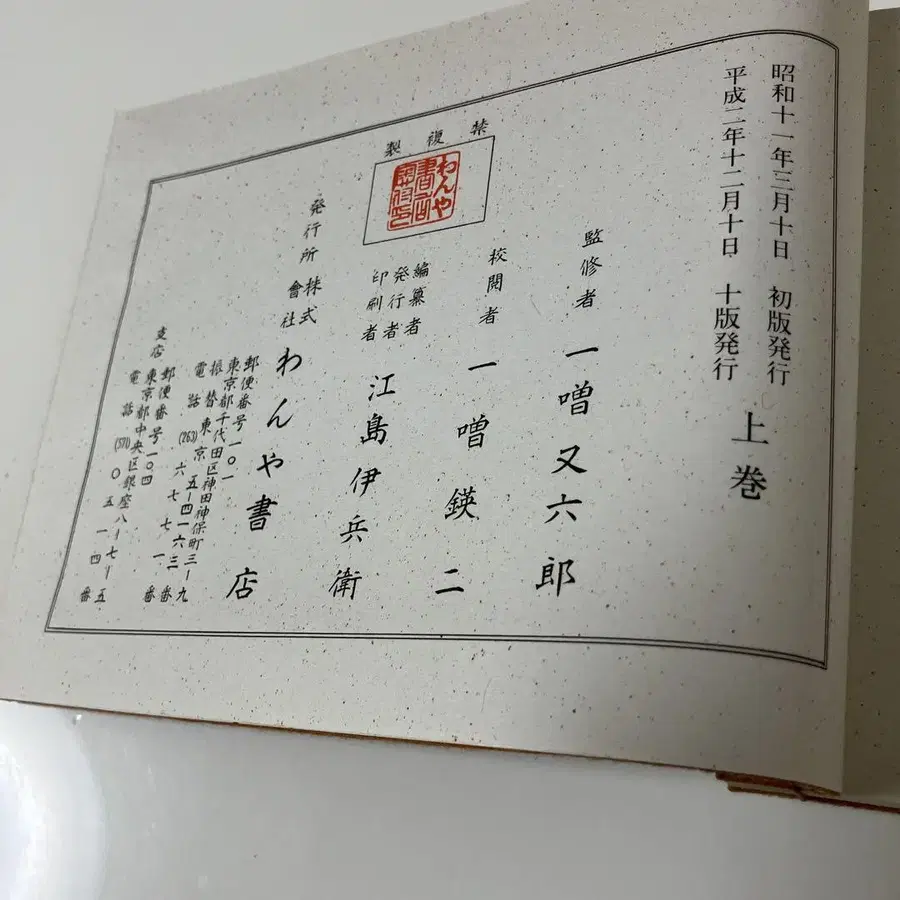 昭和十一年三月十日 初版発行
平成二年十二月十日 十版発行
上巻
監修者 一噌又六郎
校閲者 一噌鍈二
禁復製
わんや
書店
編纂者
発行者
印刷者
江島伊兵衛
発行所 株式會社 わんや書店
郵便番号一〇一
東京都千代田区神田神保町三ー九
振替東京五ー四一六三番
電話(263)六七七一番
支店 郵便番号一〇四
東京都中央区銀座八ー七ー五
電話(571)〇五一四番